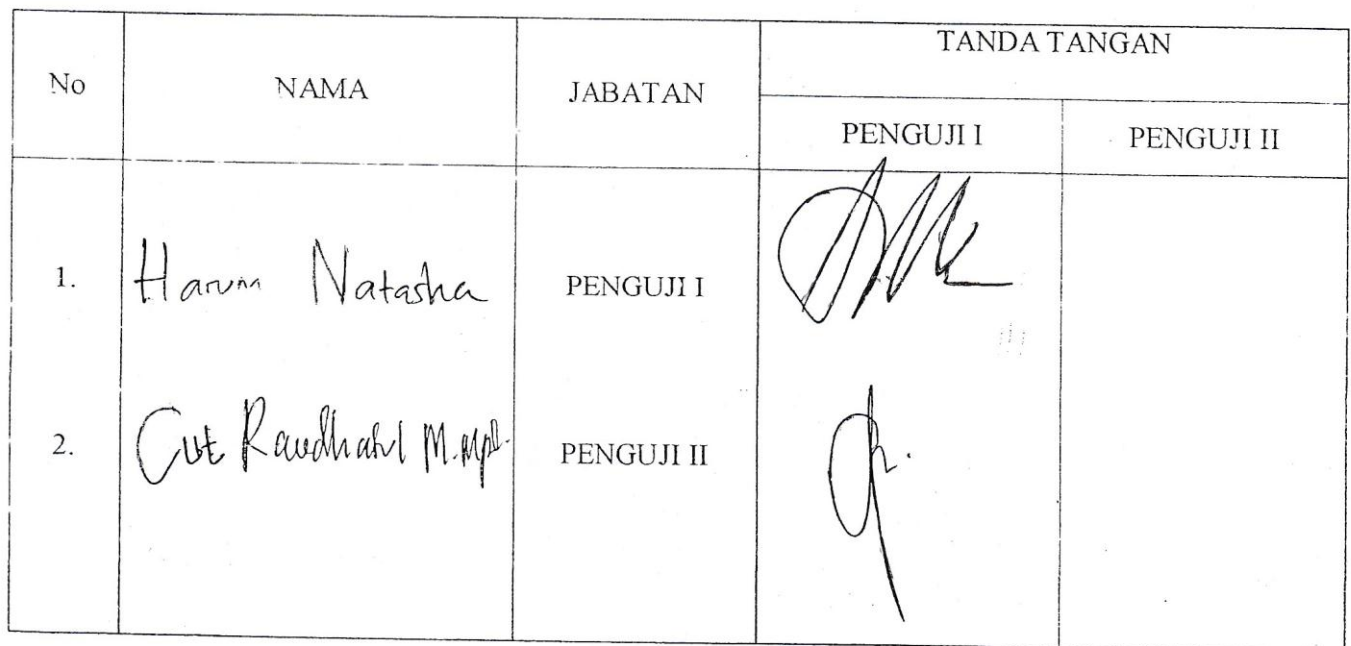 No NAMA JABATAN TANDA TANGAN
PENGUJI I PENGUJI II
1. Harum Natasha PENGUJI I
2. Cut Raudhatul PENGUJI II